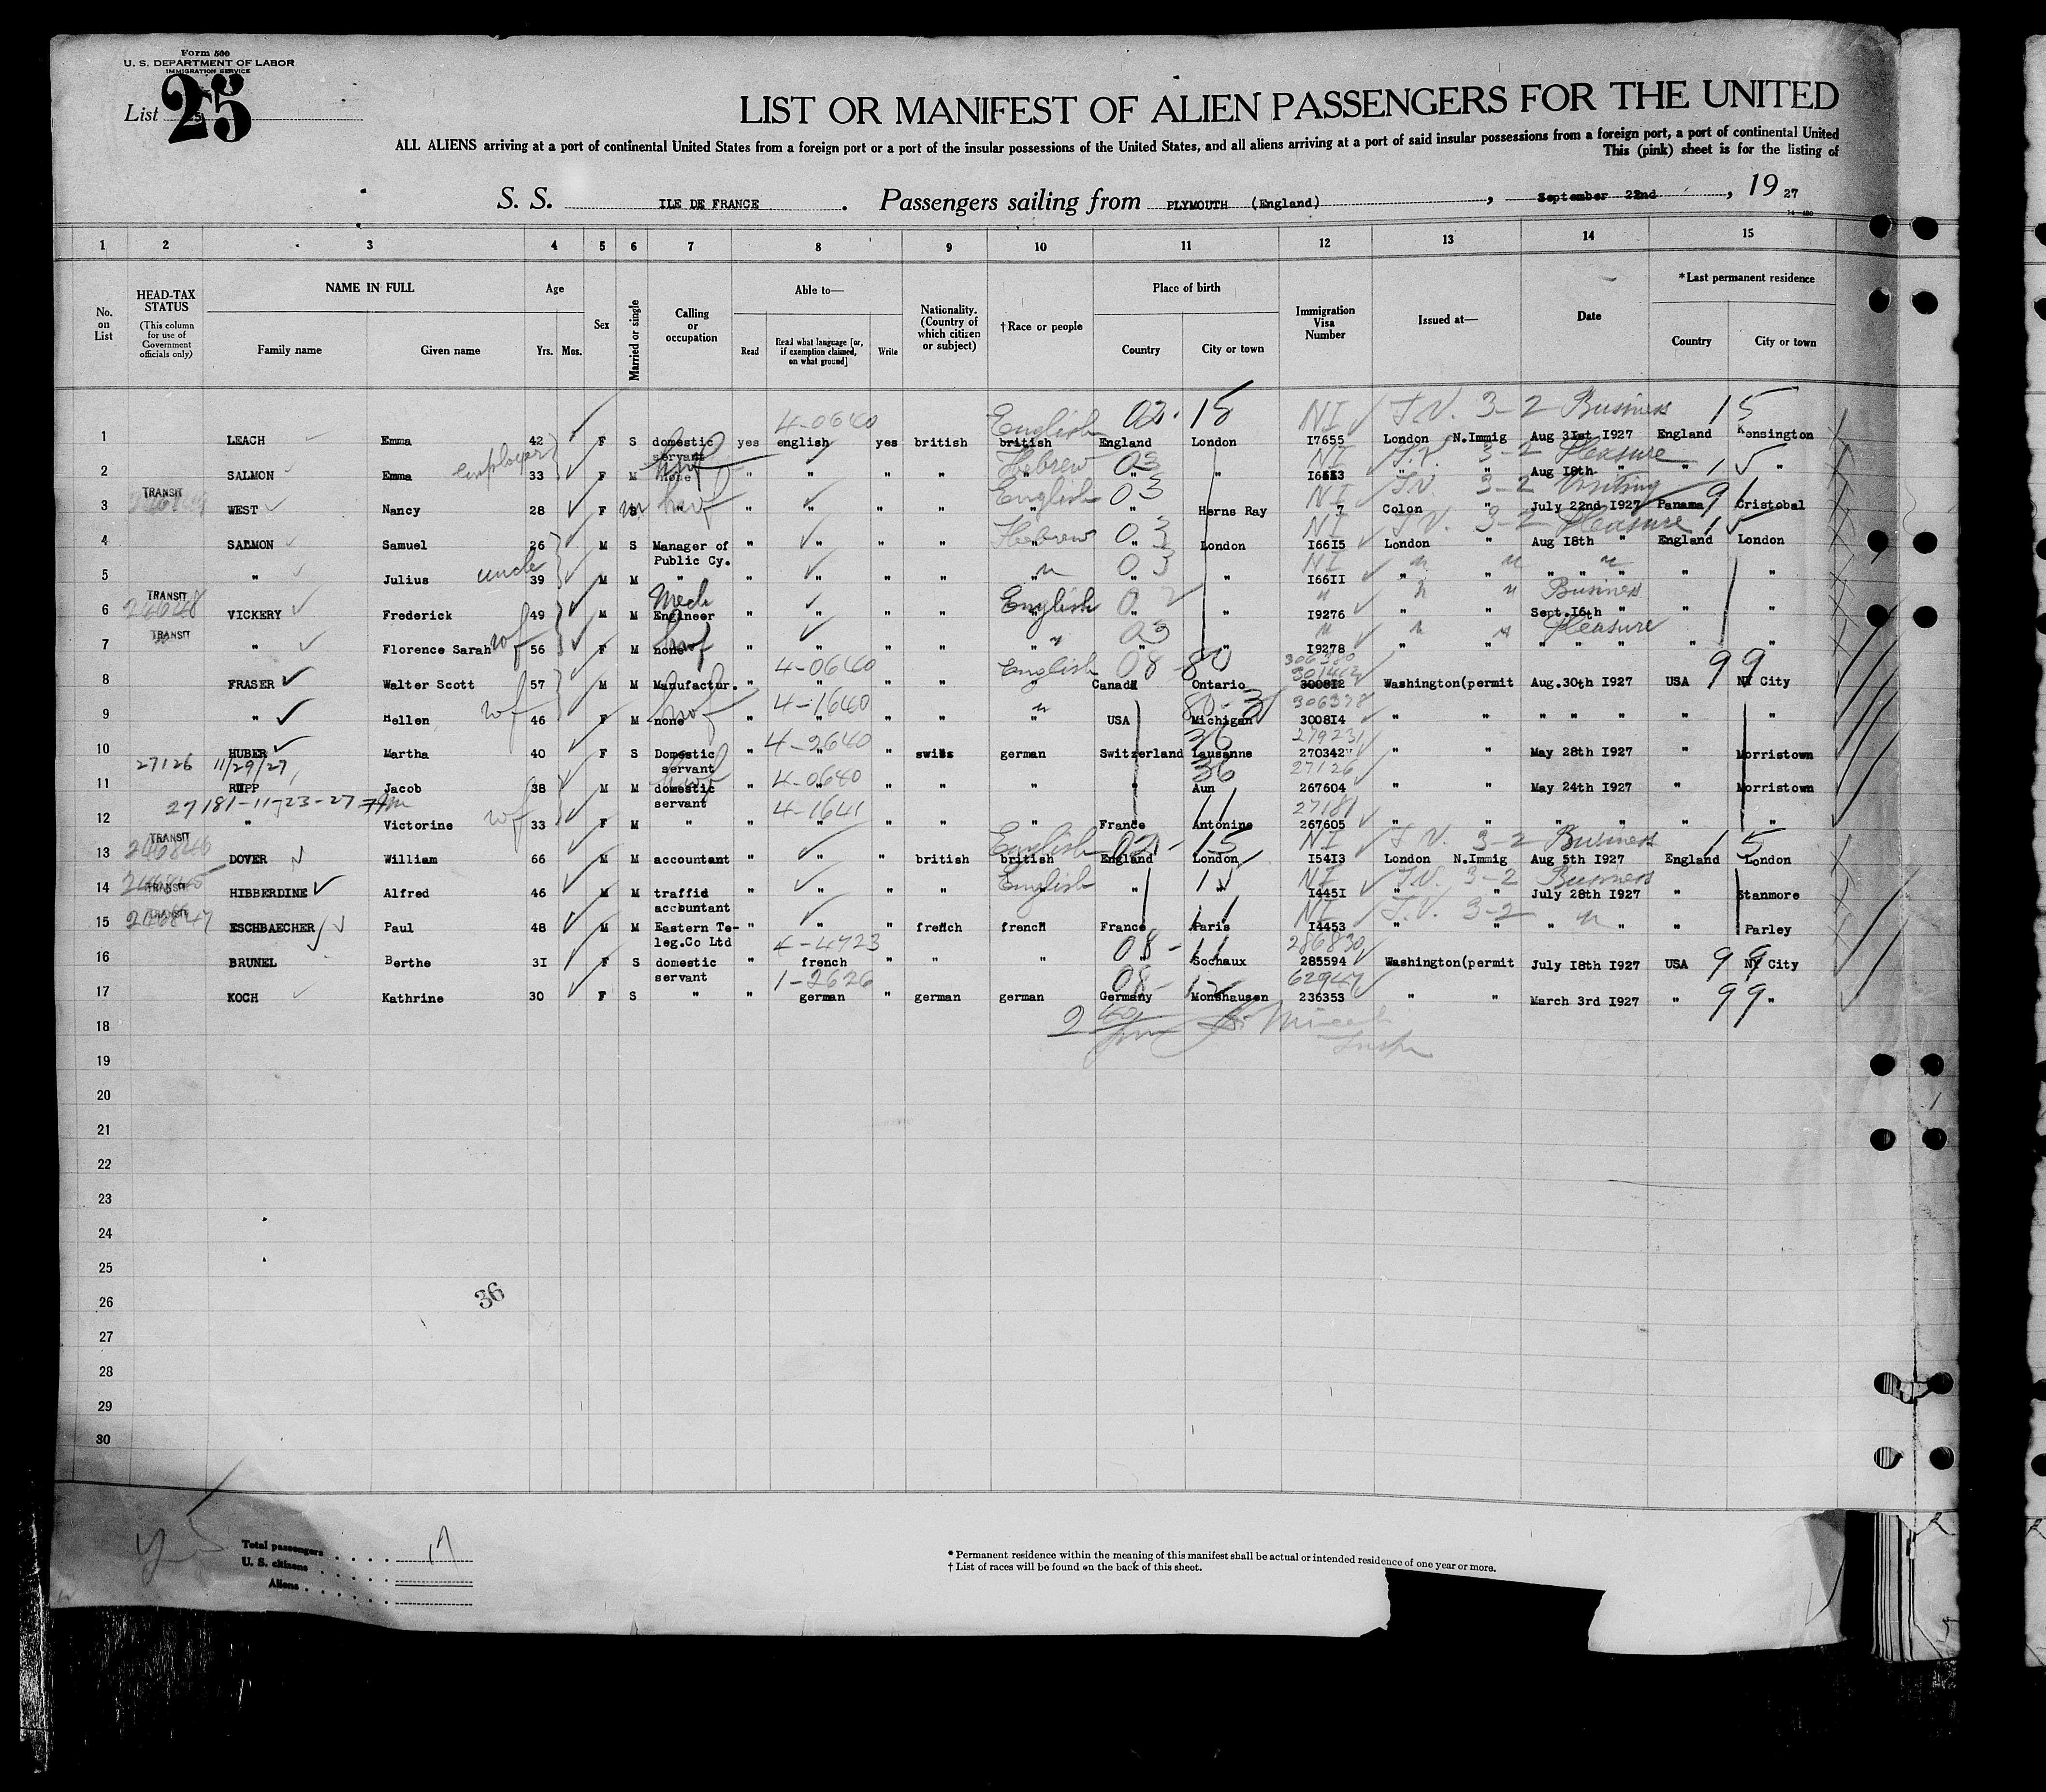 Form 500
U. S. DEPARTMENT OF LABOR
IMMIGRATION SERVICE
List 25
LIST OR MANIFEST OF ALIEN PASSENGERS FOR THE UNITED
ALL ALIENS arriving at a port of continental United States from a foreign port or a port of the insular possessions of the United States, and all aliens arriving at a port of said insular possessions from a foreign port, a port of continental United
This (pink) sheet is for the listing of
S. S. ILE DE FRANCE. Passengers sailing from PLYMOUTH (England), September 22nd, 19 27
1 2 3 4 5 6 7 8 9 10 11 12 13 14 15
No. on List
HEAD-TAX STATUS (This column for use of Government officials only)
NAME IN FULL Family name Given name
Age Yrs. Mos.
Sex
Married or single
Calling or occupation
Able to— Read Read what language [or, if exemption claimed, on what ground] Write
Nationality. (Country of which citizen or subject)
†Race or people
Place of birth Country City or town
Immigration Visa Number
Issued at—
Date
*Last permanent residence Country City or town
4-0640 English 02-15 NI T.V. 3-2 Business 15
1 LEACH Emma 42 F S domestic servant yes english yes british british England London I7655 London N.Immig Aug 31st I927 England Kensington
employer hwf Hebrew 03 NI T.V. 3-2 Pleasure 15
2 SALMON Emma 33 F M none " " " " " " " " " Aug 18th " " "
TRANSIT m hwf English 03 NI T.V. 3-2 Visiting 9
3 WEST Nancy 28 F S " " " " " " " Herns Ray 7 Colon " July 22nd I927 Panama Cristobal
Hebrew 03 NI T.V. 3-2 Pleasure 15
4 SALMON Samuel 26 M S Manager of Public Cy. " " " " " " London I66I5 London " Aug I8th " England London
uncle " 03 NI " " "
5 " Julius 39 M M " " " " " " " I66II " " " " " " "
TRANSIT Mech English " " " Business
6 VICKERY Frederick 49 M M Engineer " " " " " " " I9276 " " Sept.I6th " " "
TRANSIT wf hwf " 03 " " " Pleasure
7 " Florence Sarah 56 F M none " " " " " " " I9278 " " " " " " "
4-0640 English 08-80 99
8 FRASER Walter Scott 57 M M Manufactur. " " " " " Canada Ontario 3008I2 Washington(permit Aug.30th I927 USA NY City
wf hwf 4-1640 " 80-3 306378
9 " Hellen 46 F M none " " " " " USA Michigan 3008I4 " " " " " " "
4-2640 36 279231
10 HUBER Martha 40 F S Domestic servant " " " swiss german Switzerland Lausanne 270342 " " May 28th I927 " Morristown
27126 11/29/27 4-0640 36 27126
11 RUPP Jacob 38 M M domestic servant " " " " " " Aun 267604 " " May 24th I927 " Morristown
27181-11-23-27 wf 4-1641 11 27181
12 " Victorine 33 F M " " " " " " France Antonine 267605 " " " " " " "
TRANSIT English 02-15 NI T.V. 3-2 Business 15
13 DOVER William 66 M M accountant " " " british british England London I54I3 London N.Immig Aug 5th I927 England London
TRANSIT English NI T.V. 3-2 Business
14 HIBBERDINE Alfred 46 M M traffid accountant " " " " " " " I445I " " July 28th I927 " Stanmore
TRANSIT 11 NI T.V. 3-2 "
15 ESCHBAECHER Paul 48 M M Eastern Te-leg.Co Ltd " " " french french France Paris I4453 " " " " " " Parley
4-4723 08-11 286830 99
16 BRUNEL Berthe 3I F S domestic servant " french " " " " Sochaux 285594 Washington(permit July I8th I927 USA NY City
1-2626 08-12 62947 99
17 KOCH Kathrine 30 F S " " german " german german Germany Monshausen 236353 " " March 3rd I927 " "
18
19
20
21
22
23
24
25
26
27
28
29
30
36
Total passengers 17
U. S. citizens
Aliens
* Permanent residence within the meaning of this manifest shall be actual or intended residence of one year or more.
† List of races will be found on the back of this sheet.